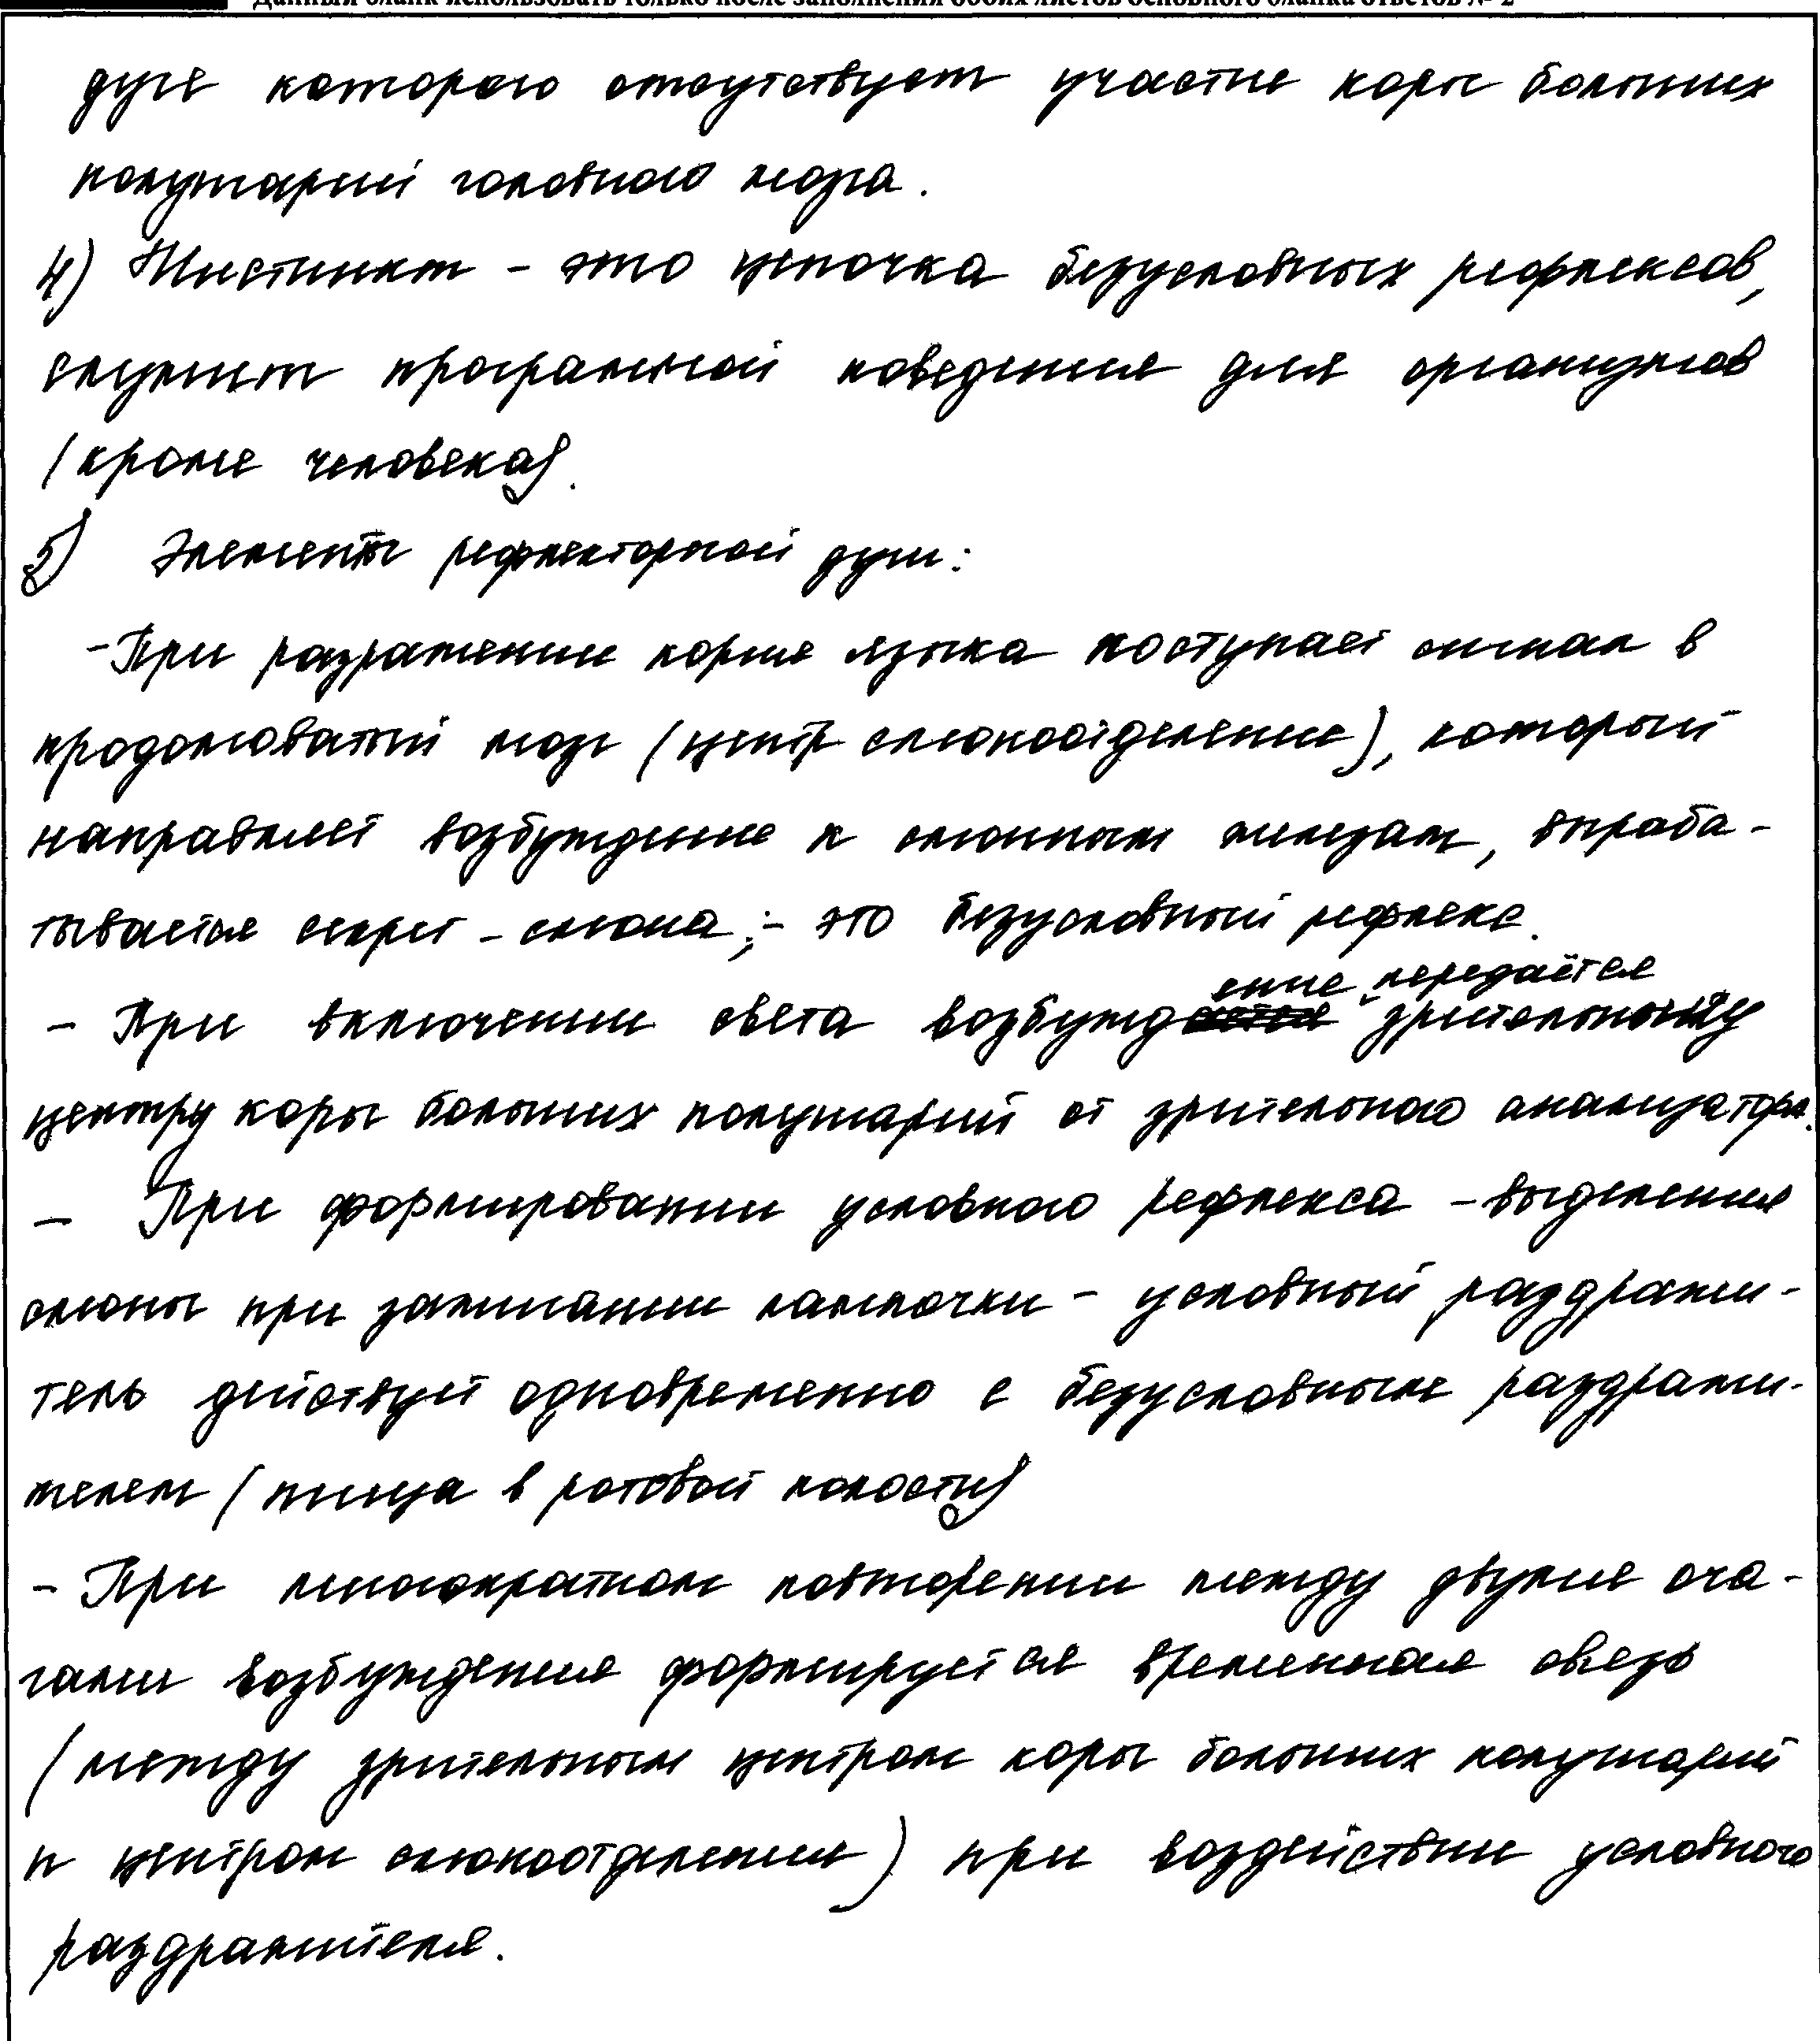 Данный бланк использовать только после заполнения обоих листов основного бланка ответов № 2
дуге которого отсутствует участие коры больших
полушарий головного мозга.
4) Инстинкт - это цепочка безусловных рефлексов,
служит программой поведения для организмов
(кроме человека).
5) Элементы рефлекторной дуги:
- При раздражении корня языка поступает сигнал в
продолговатый мозг (центр слюноотделения), который
направляет возбуждение к слюнным железам, выраба-
тывается секрет - слюна; - это безусловный рефлекс.
- При включении света возбуждение передаётся зрительному
центру коры больших полушарий от зрительного анализатора.
- При формировании условного рефлекса - выделения
слюны при зажигании лампочки - условный раздражи-
тель действует одновременно с безусловным раздражи-
телем (пища в ротовой полости)
- При многократном повторении между двумя оча-
гами возбуждения формируется временная связь
(между зрительным центром коры больших полушарий
и центром слюноотделения) при воздействии условного
раздражителя.